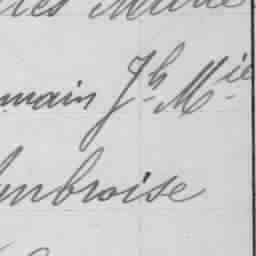 les Marie
main Jh Mie
mbroise